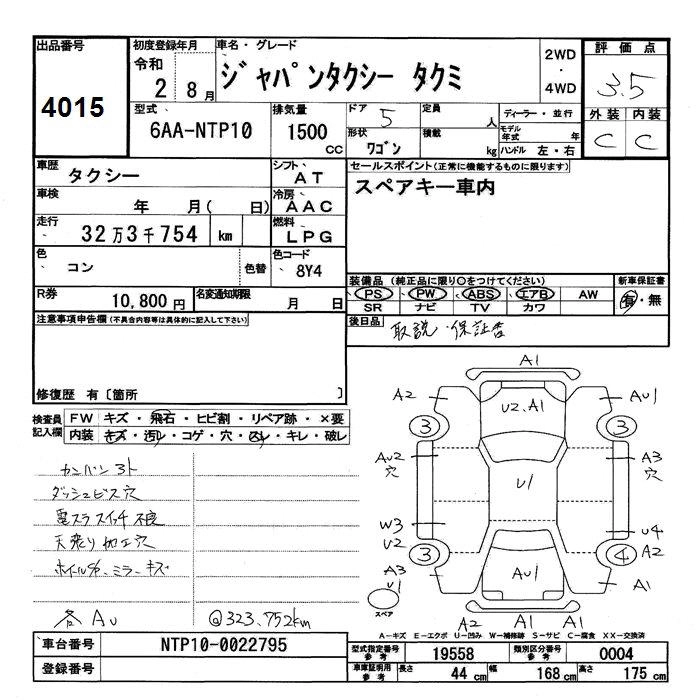 出品番号
4015
初度登録年月
令和
2 8月
車名・グレード
ジャパンタクシー タクミ
2WD
・
4WD
評価点
3.5
外装 内装
C C
型式
6AA-NTP10
排気量
1500
CC
ドア
5
形状
ワゴン
定員
人
積載
kg
ディーラー・並行
モデル年式 年
ハンドル 左・右
車歴
タクシー
シフト
AT
車検
年 月( 日)
冷房
AAC
走行
32万3千754 km
燃料
LPG
色
コン
色替
色コード
8Y4
R券
10,800円
名変通知期限
月 日
セールスポイント(正常に機能するものに限ります)
スペアキー車内
装備品 (純正品に限り○をつけてください)
PS PW ABS エアB AW
SR ナビ TV カワ
新車保証書
有・無
後日品
取説・保証書
注意事項申告欄(不具合内容等は具体的に記入して下さい)
修復歴 有〔箇所 〕
検査員
記入欄
FW キズ・飛石・ヒビ割・リペア跡・×要
内装 キズ・汚レ・コゲ・穴・スレ・キレ・破レ
カンバン 3ト
ダッシュビス穴
電スラスイッチ不良
天張り加工穴
ミラーキズ
各 AU
@323.752km
A1
A2
U2.A1
AU1
3
3
AU2
穴
U1
A3
穴
W3
U2
U4
3
4
A2
A3
U1
AU1
A1
スペア
A2
A1
A1
A-キズ E-エクボ U-凹み W-補修跡 S-サビ C-腐食 XX-交換済
車台番号
NTP10-0022795
登録番号
型式指定番号
参考
19558
類別区分番号
参考
0004
車庫証明用
参考
長さ
44 cm
幅
168 cm
高さ
175 cm